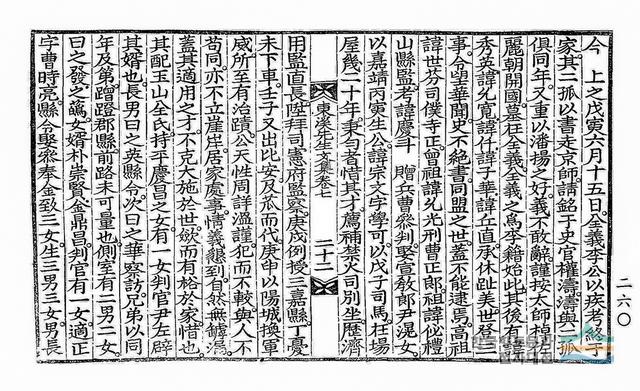 今 上之戊寅六月十五日全義李公以疾考終于
家其二孤以書走京師請銘于史官權濤濤與二孤
俱同年又重以潘揚之好義不敢辭謹按太師棹
麗朝開國墓在全義全義之爲李籍始此其後有
秀英諱允寬諱仟諱子華諱丘直承休趾美世登三
事令望華聞史不絶書同盟之世蓋不能逮焉高祖
諱世芬司僕寺正曾祖諱允光刑曹正郎祖諱
山縣監考諱慶斗 贈兵曹參判娶宣敎郎尹混女
以嘉靖丙寅生公諱宗文字學可以戊子司馬在場
屋幾二十年秉勻者惜其才薦補禁火司別坐歷濟
用監直長陞拜司憲府監察庚戌例授三嘉縣丁憂
未下車壬子又出比安及瓜而代庚申以陽城換軍
威所至有治蹟公天性周詳溫謹犯而不較與人不
苟同亦不立崖岸居家處事情義懇到自然無罅漏
蓋其適用之才不克大施於世歛而有裕於家惜也
其配玉山全氏持平慶昌之女有一女判官尹左辟
其婿也長男曰之英縣令次曰之華察訪兄弟以同
年及弟蹭蹬郡縣前路未可量也側室有二男二女
曰之發之女婿朴崇賢金鼎昌判官有一女適正
字曹時亮縣令娶參奉金致三女生三男三女男長
東溪先生文集卷七
二十二
二六〇